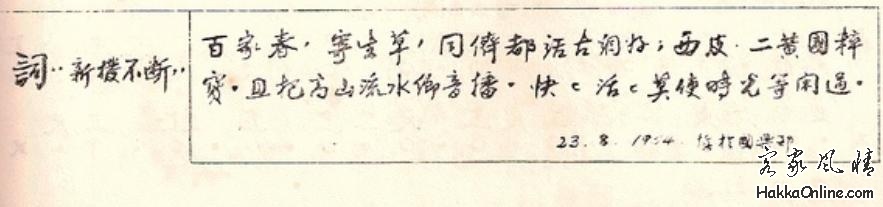 詞:新撥不断:
百家春,寄生草,同儕都話古調好;西皮.二黄國粹
寳。且把高山流水鄉音播。快〻活〻莫使時光等閑過。
23. 8. 1954. 於國樂部
客家風情
HakkaOnline.com